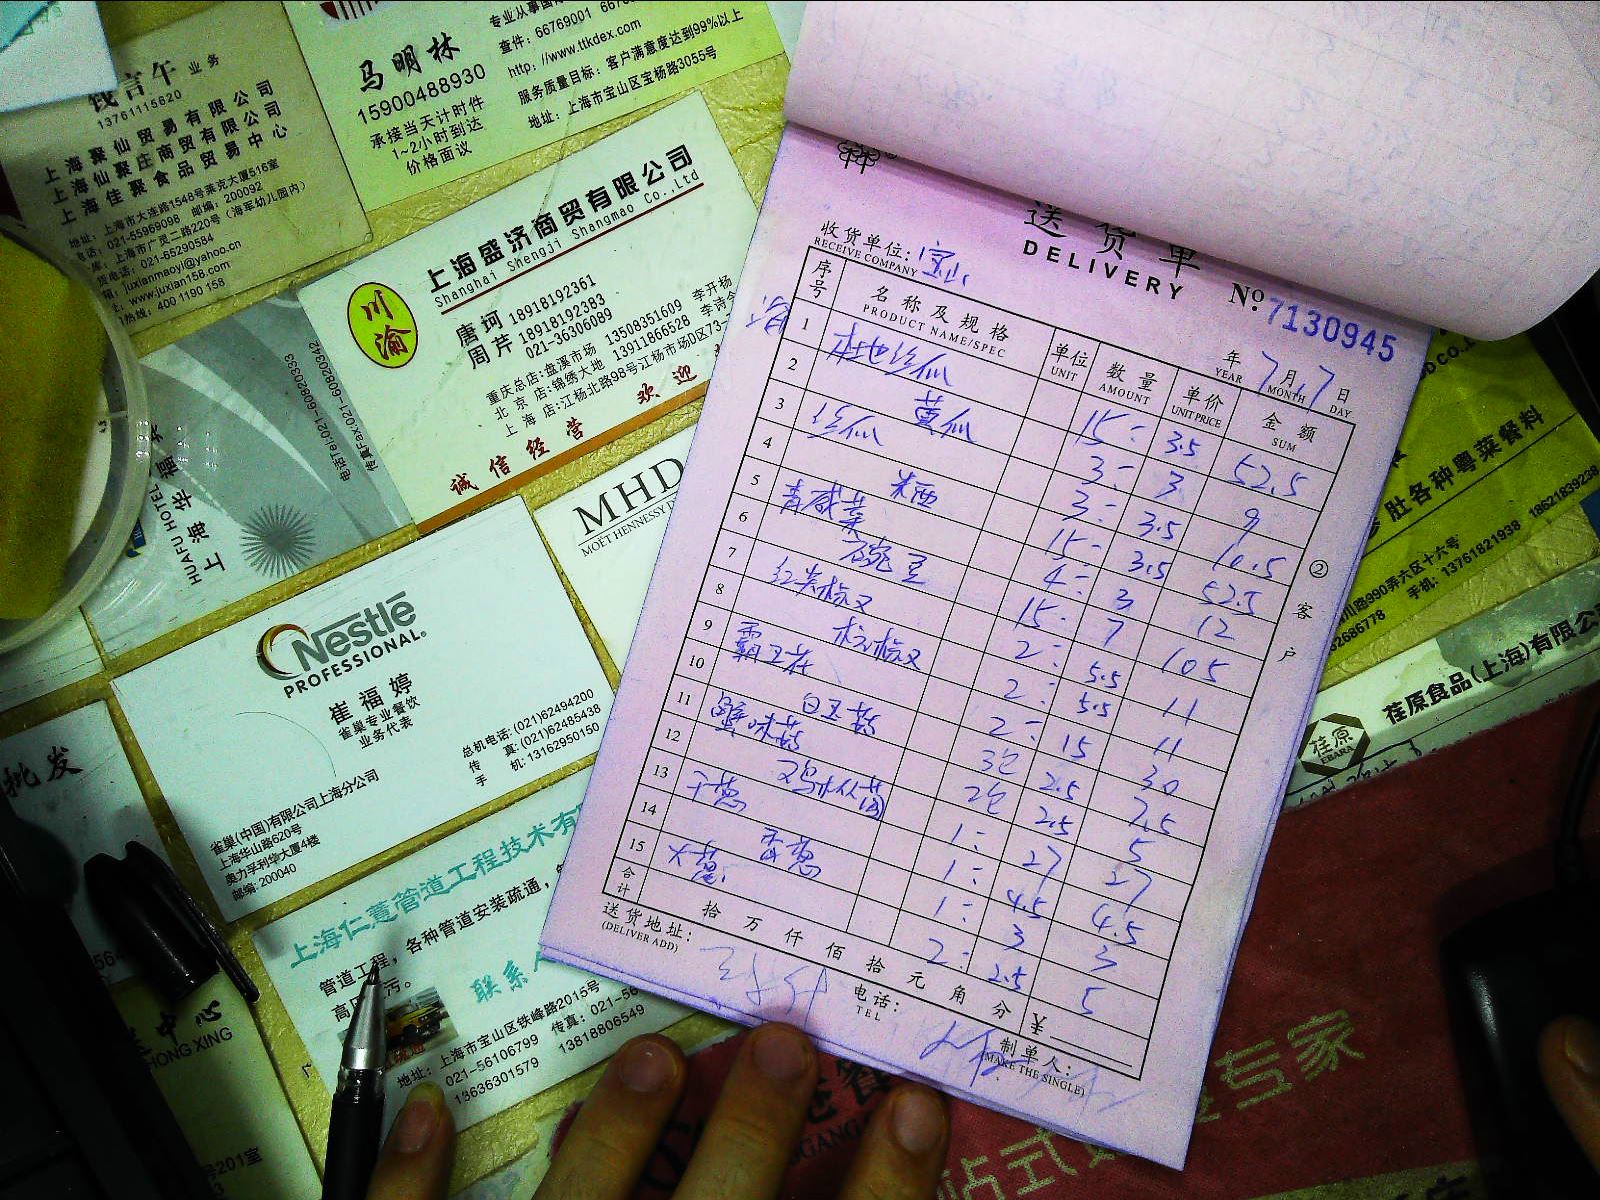 钱言午 业务
13761115620
上海聚仙贸易有限公司
上海仙聚庄商贸有限公司
上海佳聚食品贸易中心
地址：上海市大连路1548号莱克大厦516室
电话：021-55969098 邮编：200092
库：上海市广灵二路220号（海军幼儿园内）
货电话：021-65290584
箱：juxianmaoyi@yahoo.cn
www.juxian158.com
热线：400 1190 158
马明林
15900488930
承接当天计时件
1~2小时到达
价格面议
专业从事国
查件：66769001
http://www.ttkdex.com
服务质量目标：客户满意度达到99%以上
地址：上海市宝山区宝杨路3055号
川渝
上海盛济商贸有限公司
Shanghai Shengji Shangmao Co.,Ltd
唐珂 18918192361
周芹 18918192383
021-36306089
重庆总店:盘溪市场 13508351609 李开杨
北京店:锦绣大地 13911866528 李诗
上海店:江杨北路98号江杨市场D区73
诚信经营 欢迎
上海华福
HUAFU HOTEL
电话Tel:021-60820333
传真Fax:021-60820342
MHD
MOËT HENNESSY
Nestlé
PROFESSIONAL
崔福婷
雀巢专业餐饮
业务代表
总机电话:(021)62494200
传 真:(021)62485438
手 机:13162950150
雀巢(中国)有限公司上海分公司
上海华山路620号
奥力孚利华大厦4楼
邮编:200040
批发
上海仁薏管道工程技术有
管道工程，各种管道安装疏通，
联系
地址：上海市宝山区铁峰路2015号
021-56106799 传真：021-56
13636301579 13818806549
中心
HONG XING
号201室
送货单
DELIVERY
收货单位：宝山
RECEIVE COMPANY
№ 7130945
年 7月 7日
YEAR MONTH DAY
序号 名称及规格 单位 数量 单价 金额
PRODUCT NAME/SPEC UNIT AMOUNT UNIT PRICE SUM
1 本地丝瓜 15 3.5 52.5
2 黄瓜 3 3 9
3 丝瓜 3 3.5 10.5
4 米西 15 3.5 52.5
5 青咸菜 4 3 12
6 碗豆 15 7 105
7 红尖椒 2 5.5 11
8 2 5.5 11
9 霸王花 2 15 30
10 白玉菇 3包 2.5 7.5
11 蟹味菇 2包 2.5 5
12 鸡枞菌 1 27 27
13 干葱 1 4.5 4.5
14 香葱 1 3 3
15 大葱 2 2.5 5
合计 拾 万 仟 佰 拾 元 角 分 ¥
送货地址：
(DELIVER ADD)
电话：
TEL
制单人：
(MAKE THE SINGLE)
② 客户
肚各种粤菜餐料
川路990弄六区十六号
手机：13761821938 18621839238
62686778
荏原
EBARA
荏原食品(上海)有限公
站式
专家